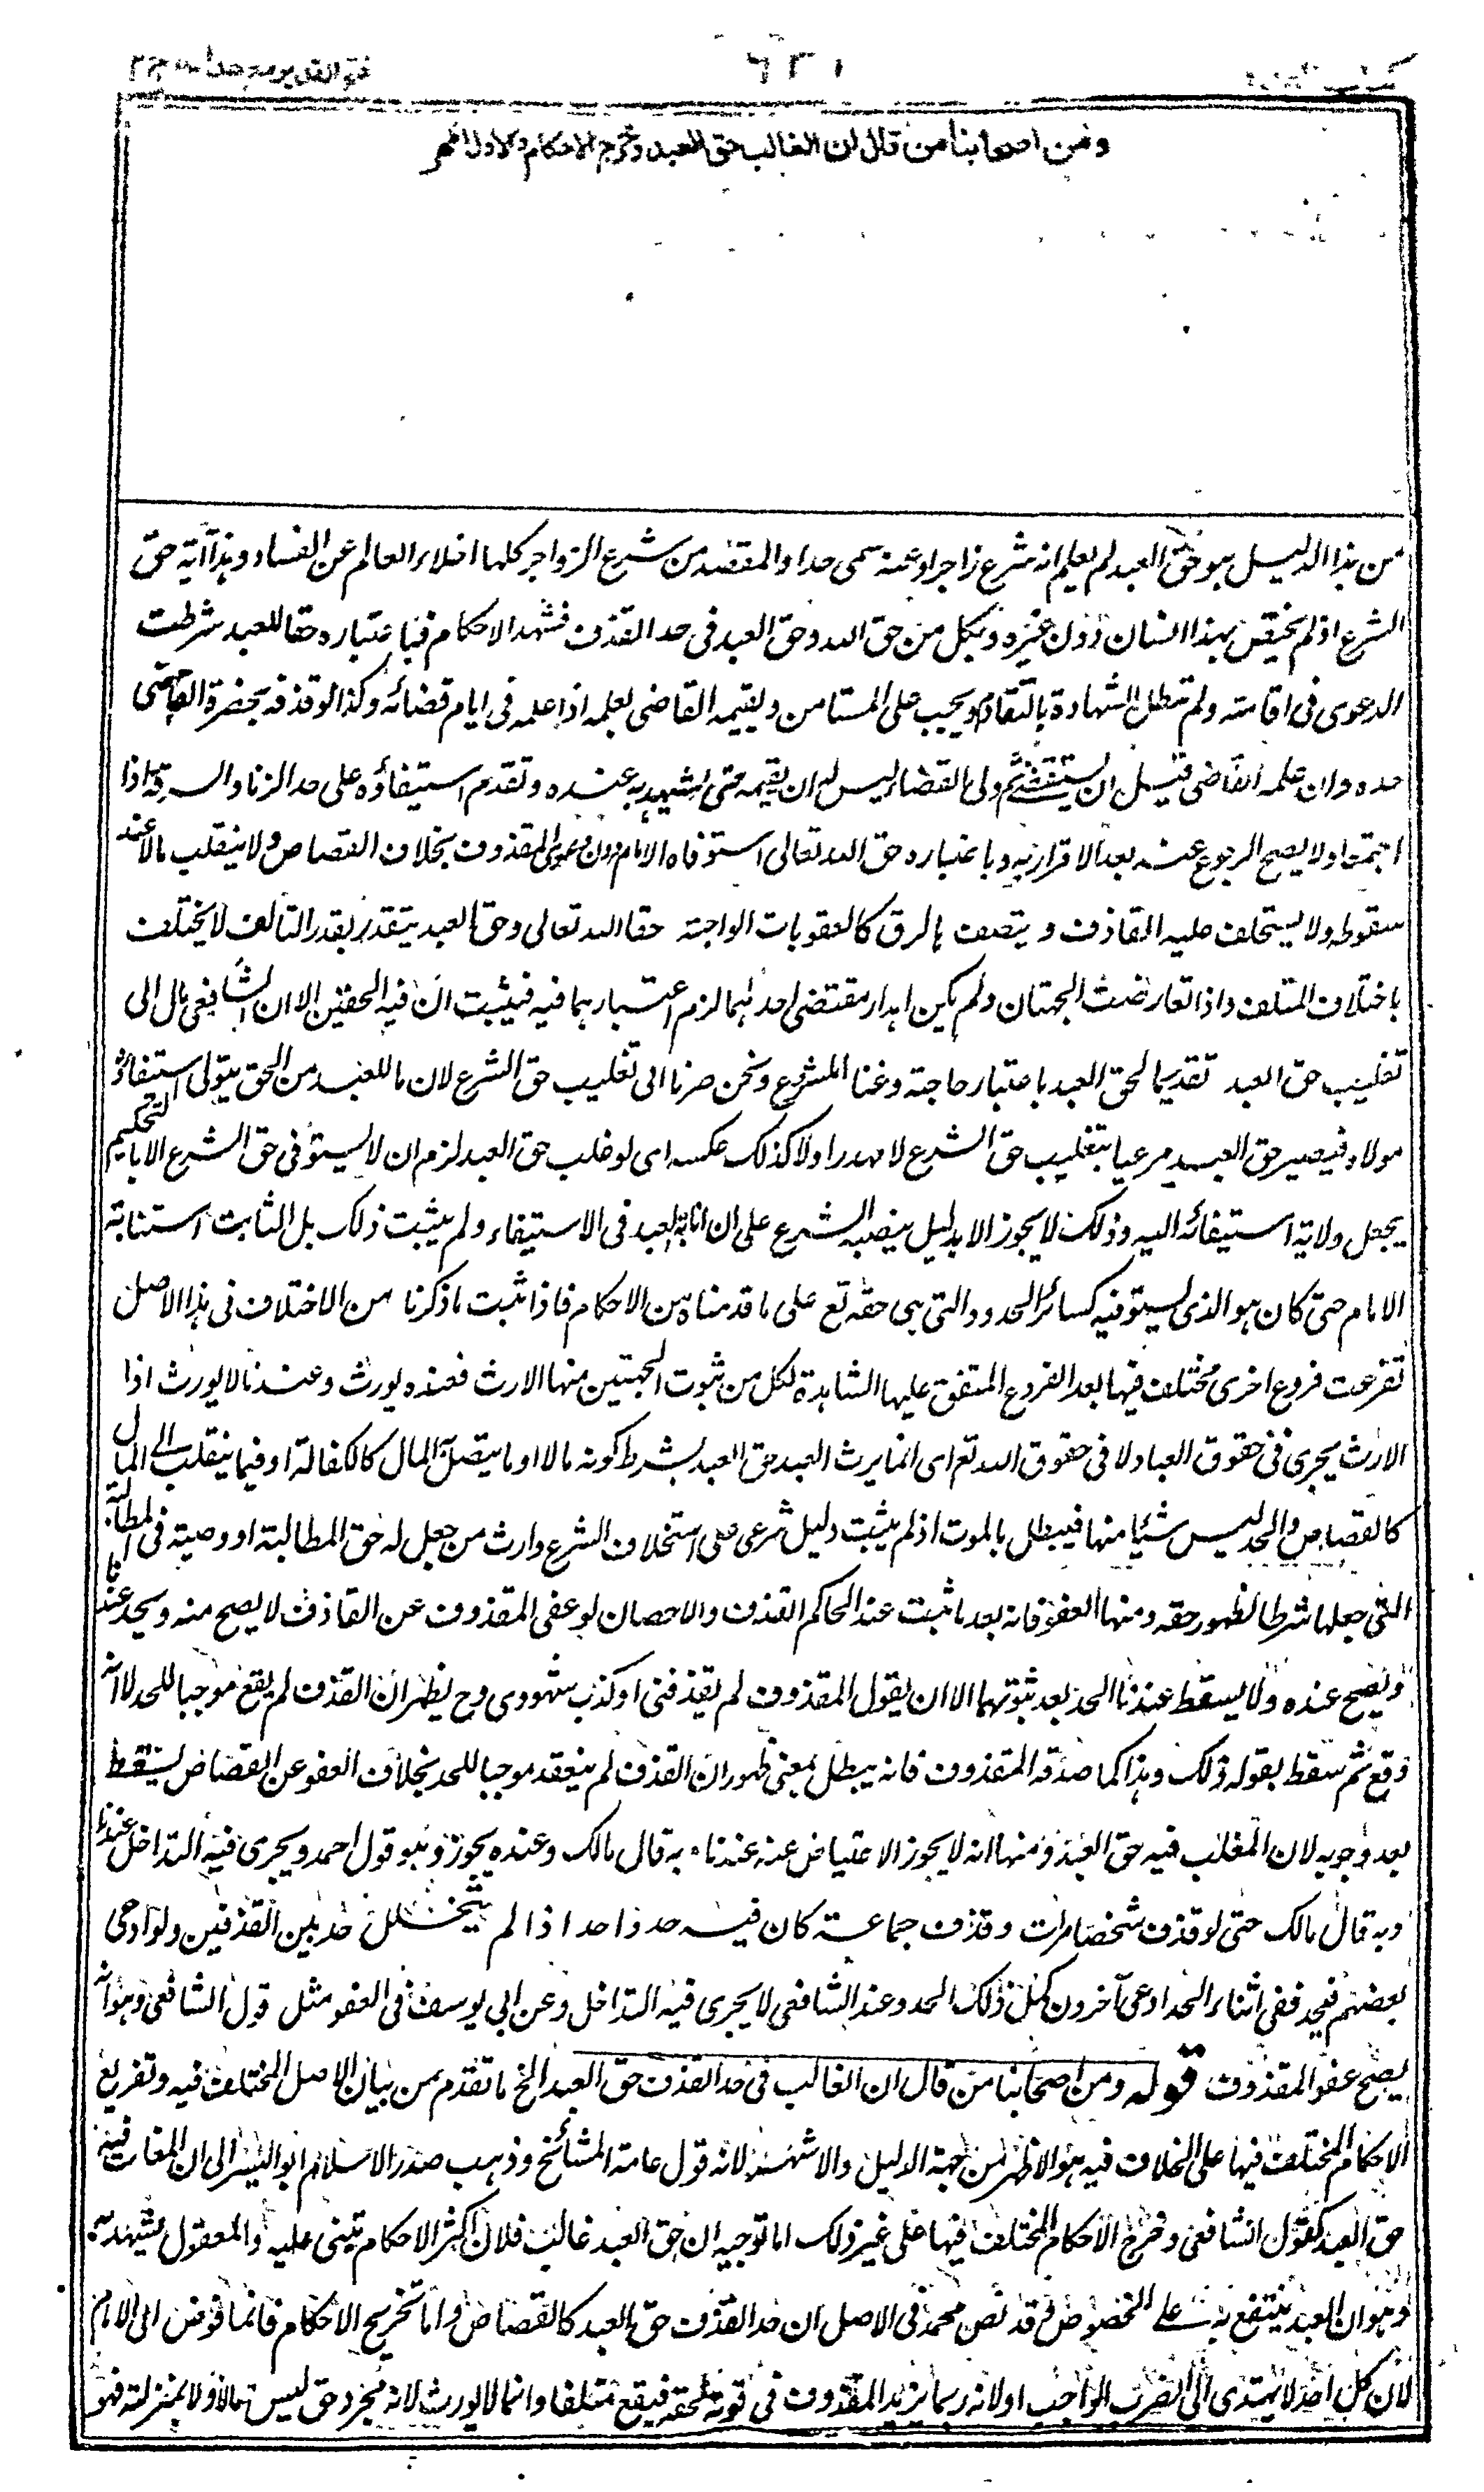 فتح القدير مع هدايه ج ٢
٦٣١
كتاب الحدود
ومن اصحابنا من قال ان الغالب حق العبد وخرج الاحكام والاول اظهر
من هذا الدليل هو حق العبد ثم يعلم انه شرع زاجرا وعنه سمى حدا والمقصد من شرع الزواجر كلها اخلاء العالم عن الفساد وهذا آية حق
الشرع اذ لم يختص بهذا انسان دون غيره وبكل من حق الله وحق العبد فى حد القذف تشهد الاحكام فباعتباره حقا للعبد شرطت
الدعوى فى اقامته ولم تبطل الشهادة بالتقادم ويجب على المستامن ويقيمه القاضى بعلمه اذا علمه فى ايام قضائه وكذا لو قذفه بحضرة القاضى
حده وان علمه القاضى قبل ان يستقضى ثم ولى القضاء ليس له ان يقيمه حتى يشهد به عنده وتقدم استيفاؤه على حد الزنا والسرقة اذا
اجتمعا ولا يصح الرجوع عنه بعد الاقرار به وباعتباره حق الله تعالى استوفاه الامام دون دعوى المقذوف بخلاف القصاص ولا ينقلب مالا عند
سقوطه ولا يستحلف عليه القاذف ويتنصف بالرق كالعقوبات الواجبة حقا لله تعالى وحق العبد يتقدر بقدر التالف لا يختلف
باختلاف المتلف واذا تعارضت الجهتان ولم يكن اهدار مقتضى احدهما لزم اعتبارهما فيه فيثبت ان فيه الحقين الا ان الشافعى مال الى
تغليب حق العبد تقديما لحق العبد باعتبار حاجته وغنا الشرع ونحن صرنا الى تغليب حق الشرع لان ما للعبد من الحق يتولى استيفاؤه
مولاه فيصير حق العبد مرعيا بتغليب حق الشرع لا مهدرا ولا كذلك عكسه اى لو غلب حق العبد لزم ان لا يستوفى حق الشرع الا بالتحكيم
يجعل ولاية استيفائه اليه وذلك لا يجوز الا بدليل ينصبه الشرع على ان انابة العبد فى الاستيفاء ولم يثبت ذلك بل الثابت استنابة
الامام حتى كان هو الذى يستوفيه كسائر الحدود التى هى حقه تع على ما قدمناه من الاحكام فاذا ثبت ما ذكرنا من الاختلاف فى هذا الاصل
تفرعت فروع اخرى مختلف فيها بعد الفروع المتفق عليها الشاهدة لكل من ثبوت الجهتين منها الارث فعنده يورث وعندنا لا يورث اذا
الارث يجرى فى حقوق العباد لا فى حقوق الله تع اى انما يرث العبد حق العبد بشرط كونه مالا او ما يتصل بالمال كالكفالة او فيما ينقلب الى المال
كالقصاص والحد ليس شيئا منها فيبطل بالموت اذ لم يثبت دليل شرعى على استخلاف الشرع وارث من جعل له حق المطالبة او وصية فى المطالبة
التى جعلها شرطا لظهور حقه ومنها العفو فانه بعد ما ثبت عند الحاكم القذف والاحصان لو عفى المقذوف عن القاذف لا يصح منه ويحد عندنا
ويصح عنده ولا يسقط عندنا الحد بعد ثبوتهما الا ان يقول المقذوف لم يقذفنى او كذب شهودى وح يظهر ان القذف لم يقع موجبا للحد لا انه
وقع ثم سقط بقوله ذلك وهذا كما صدقه المقذوف فانه يبطل بمعنى ظهور ان القذف لم ينعقد موجبا للحد بخلاف العفو عن القصاص يسقط
بعد وجوبه لان المغلب فيه حق العبد ومنها انه لا يجوز الاعتياض عنه عندنا وبه قال مالك وعنده يجوز وهو قول احمد ويجرى فيه التداخل عندنا
وبه قال مالك حتى لو قذف شخصا مرات وقذف جماعة كان فيه حد واحد اذا لم يتخلل حد بين القذفين ولو ادعى
بعضهم فيحد ففى اثناء الحد ادعى آخرون كمل ذلك الحد وعند الشافعى لا يجرى فيه التداخل وعن ابى يوسف فى العفو مثل قول الشافعى وهو انه
يصح عفو المقذوف قوله ومن اصحابنا من قال ان الغالب فى حد القذف حق العبد الخ ما تقدم من بيان الاصل المختلف فيه وتفريع
الاحكام المختلف فيها على الخلاف فيه هو الاظهر من جهة الدليل والاشهر لانه قول عامة المشائخ وذهب صدر الاسلام ابو اليسر الى ان المغلب فيه
حق العبد كقول الشافعى وخرج الاحكام المختلف فيها على غير ذلك اما توجيه ان حق العبد غالب فلان اكثر الاحكام تبنى عليه والمعقول يشهد له
وهو ان العبد ينتفع به على الخصوص وقد نص محمد فى الاصل ان حد القذف حق العبد كالقصاص واما تخريج الاحكام فانما فوض الى الامام
لان كل احد لا يهتدى الى الضرب الواجب او لانه ربما يزيد المقذوف فى قوته لحقه فيقع متلفا وانما لا يورث لانه مجرد حق ليس مالا ولا بمنزلته فهو